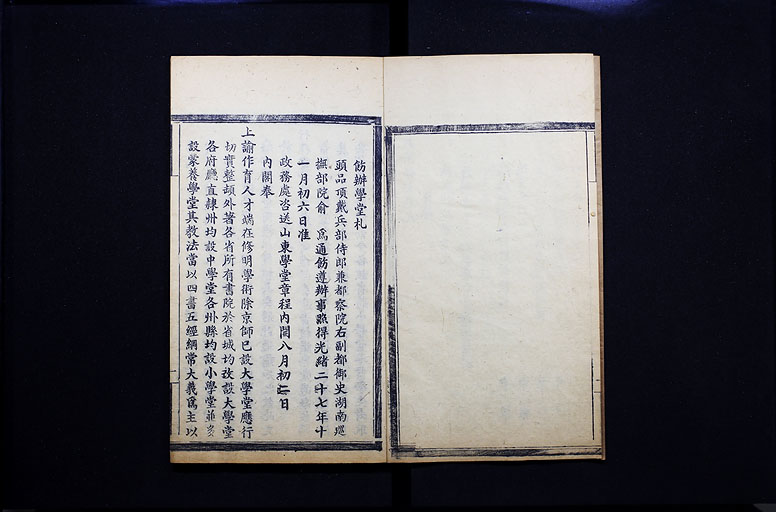 飭辦學堂札
頭品頂戴兵部侍郎兼都察院右副都御史湖南巡
撫部院俞 爲通飭遵辦事照得光緒二十七年十
一月初六日准
政務處咨送山東學堂章程内開八月初二日
内閣奉
上諭作育人才端在修明學術除京師已設大學堂應行
切實整頓外著各省所有書院於省城均改設大學堂
各府廳直隸州均設中學堂各州縣均設小學堂並多
設蒙養學堂其教法當以四書五經綱常大義爲主以